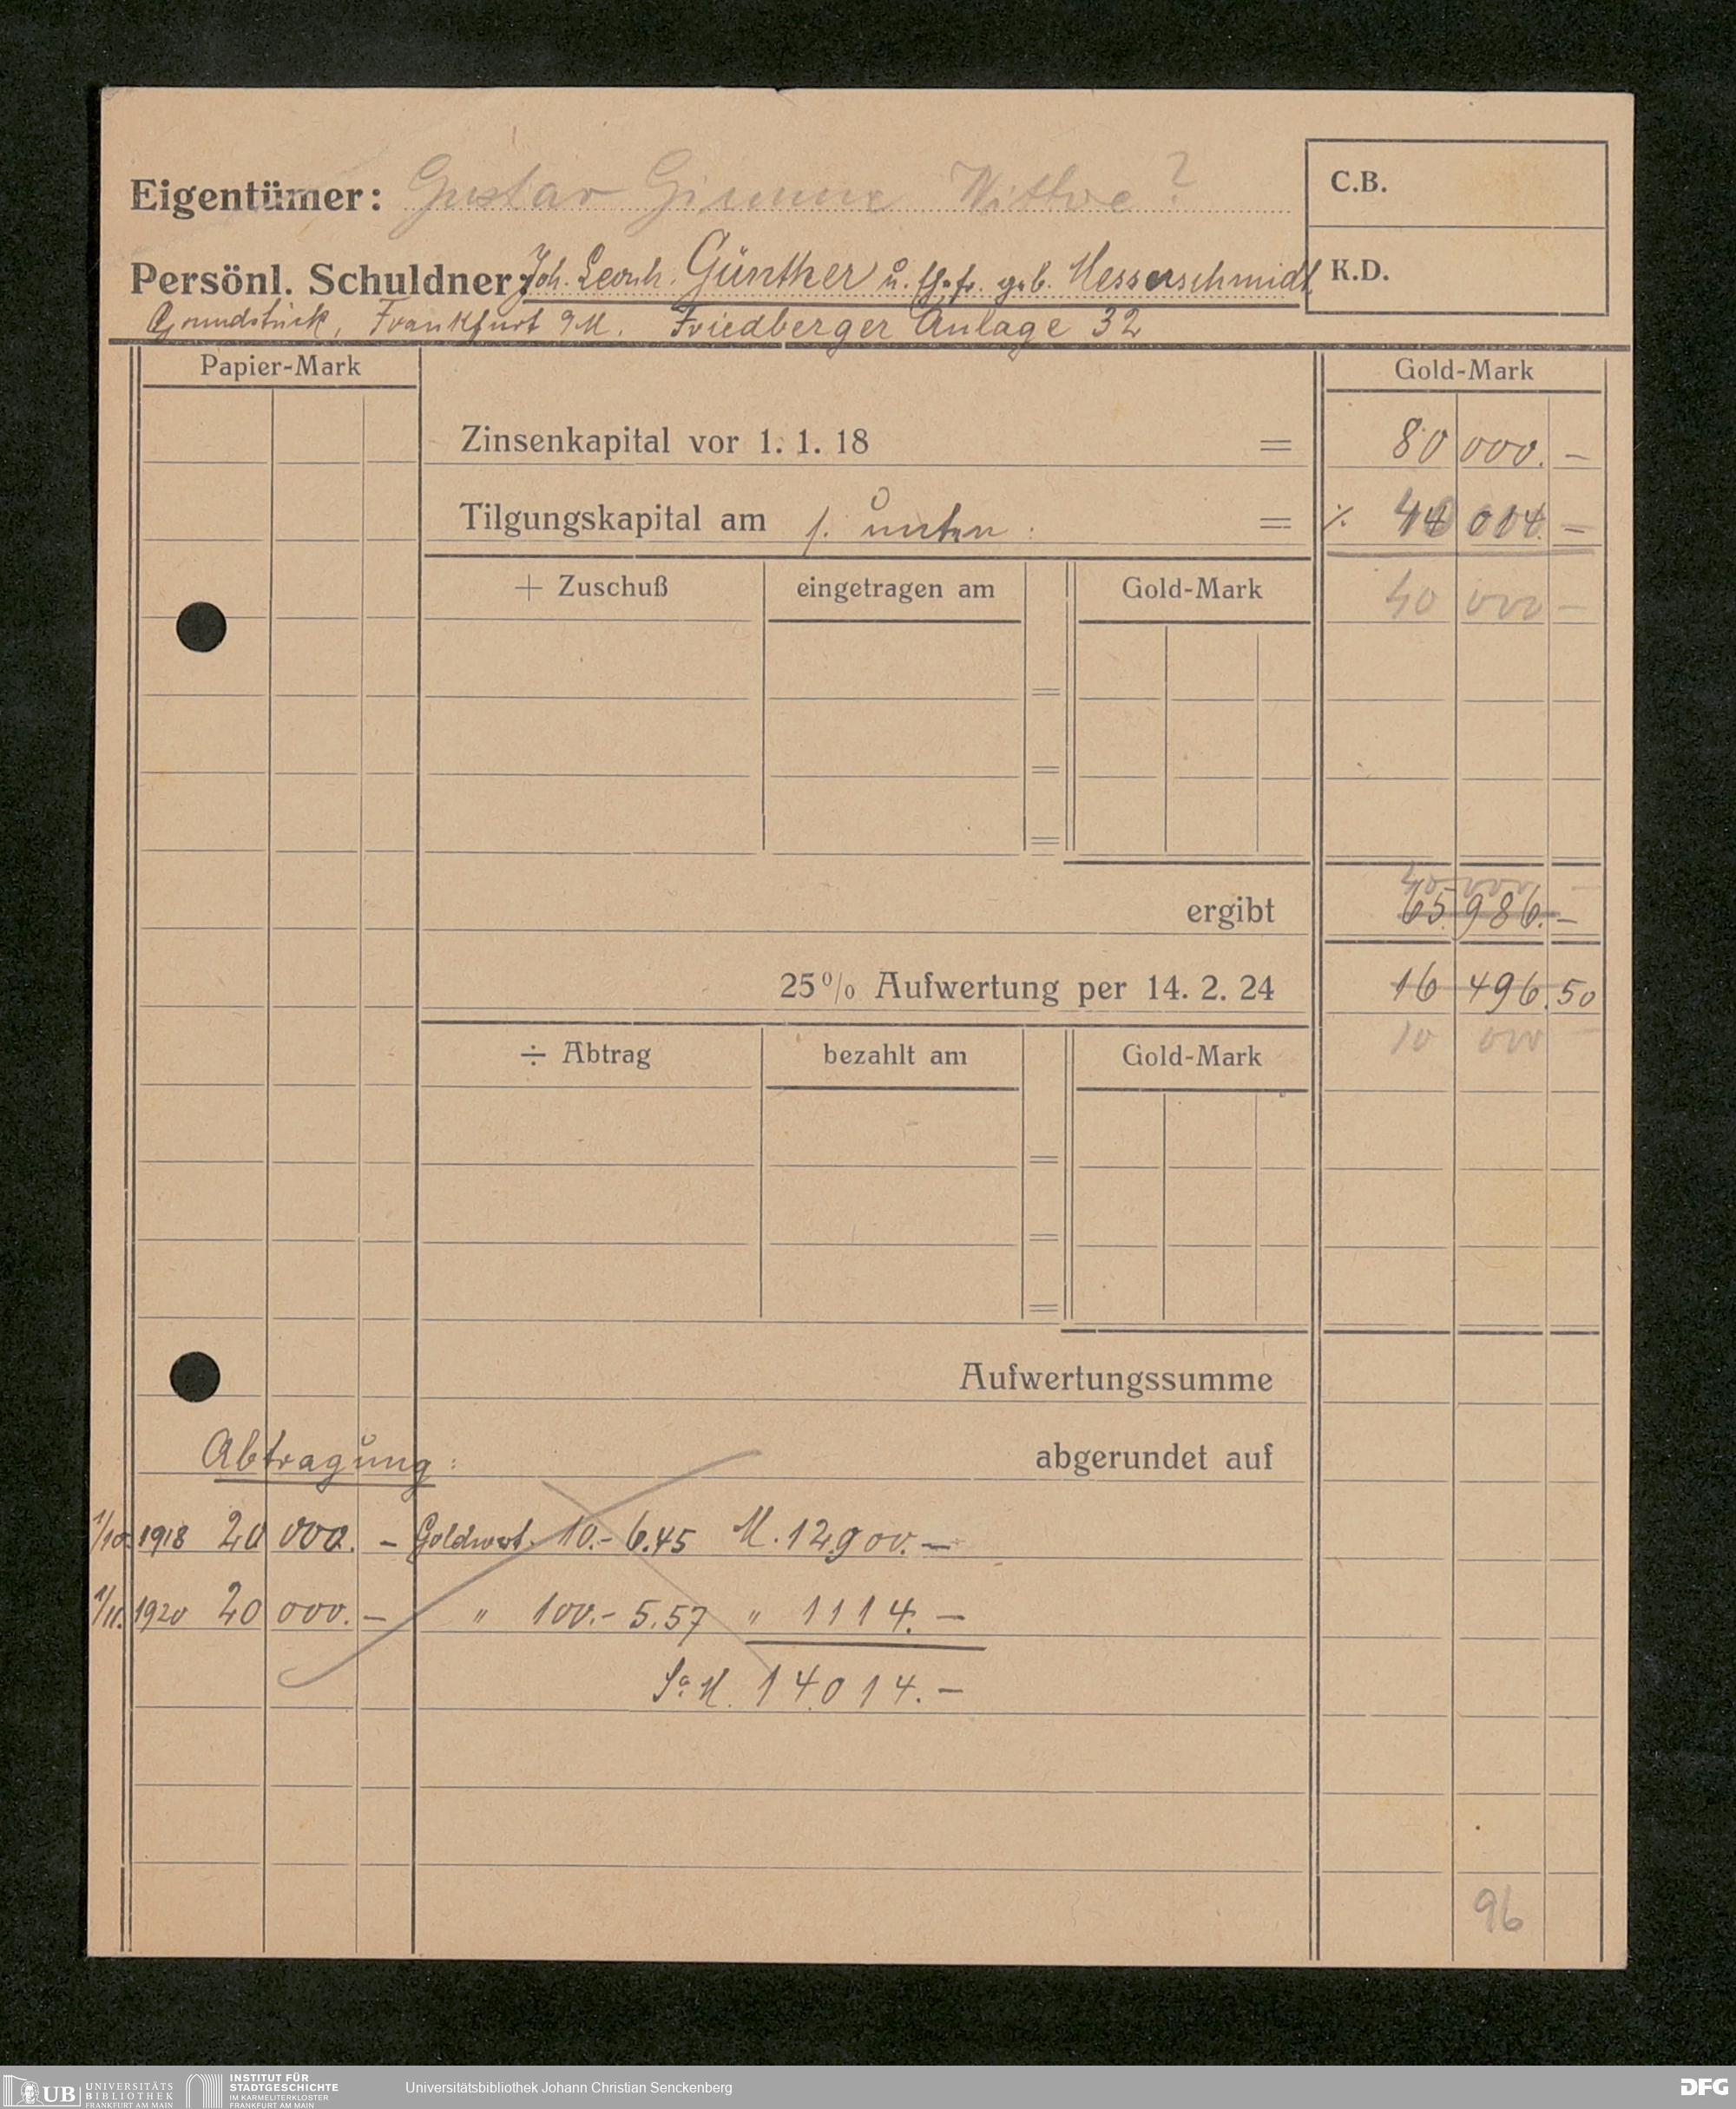 Eigentümer: Gustav Witwe?
C.B.
Persönl. Schuldner: Joh. Leonh. Günther u. Ehefr. geb. Messerschmidt
K.D.
Grundstück, Frankfurt a/M. Friedberger Anlage 32
Papier-Mark
Gold-Mark
Zinsenkapital vor 1. 1. 18 = 80 000. —
Tilgungskapital am s. unten: = ٪ 014. —
+ Zuschuß eingetragen am Gold-Mark 40 000 —
40 000 —
ergibt 65 986. —
25% Aufwertung per 14. 2. 24 16 496. 50
÷ Abtrag bezahlt am Gold-Mark 10 000 —
Aufwertungssumme
Abtragung: abgerundet auf
1/10. 1918 20 000. — Goldwert. 10.- 6.45 M. 12900. —
1/11. 1920 20 000. — " 100.- 5.57 " 1114. —
Sa. M. 14014. —
96
UB UNIVERSITÄTS BIBLIOTHEK FRANKFURT AM MAIN
INSTITUT FÜR STADTGESCHICHTE IM KARMELITERKLOSTER FRANKFURT AM MAIN
Universitätsbibliothek Johann Christian Senckenberg
DFG